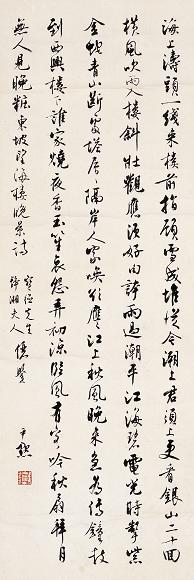 海上濤頭一線來樓前指顧雪成堆從今潮上君須上更看銀山二十回
橫風吹雨入樓斜壯觀應須好句誇雨過潮平江海碧電光時掣紫
金蛇青山斷處塔層層隔岸人家喚欲譍江上秋風晚來急為傳鐘鼓
到西興樓下誰家燒夜香玉笙哀怨弄初涼臨風有客吟秋扇拜月
無人見晚粧東坡望海樓晚景詩
先生
湘夫人儷鑒
尹默